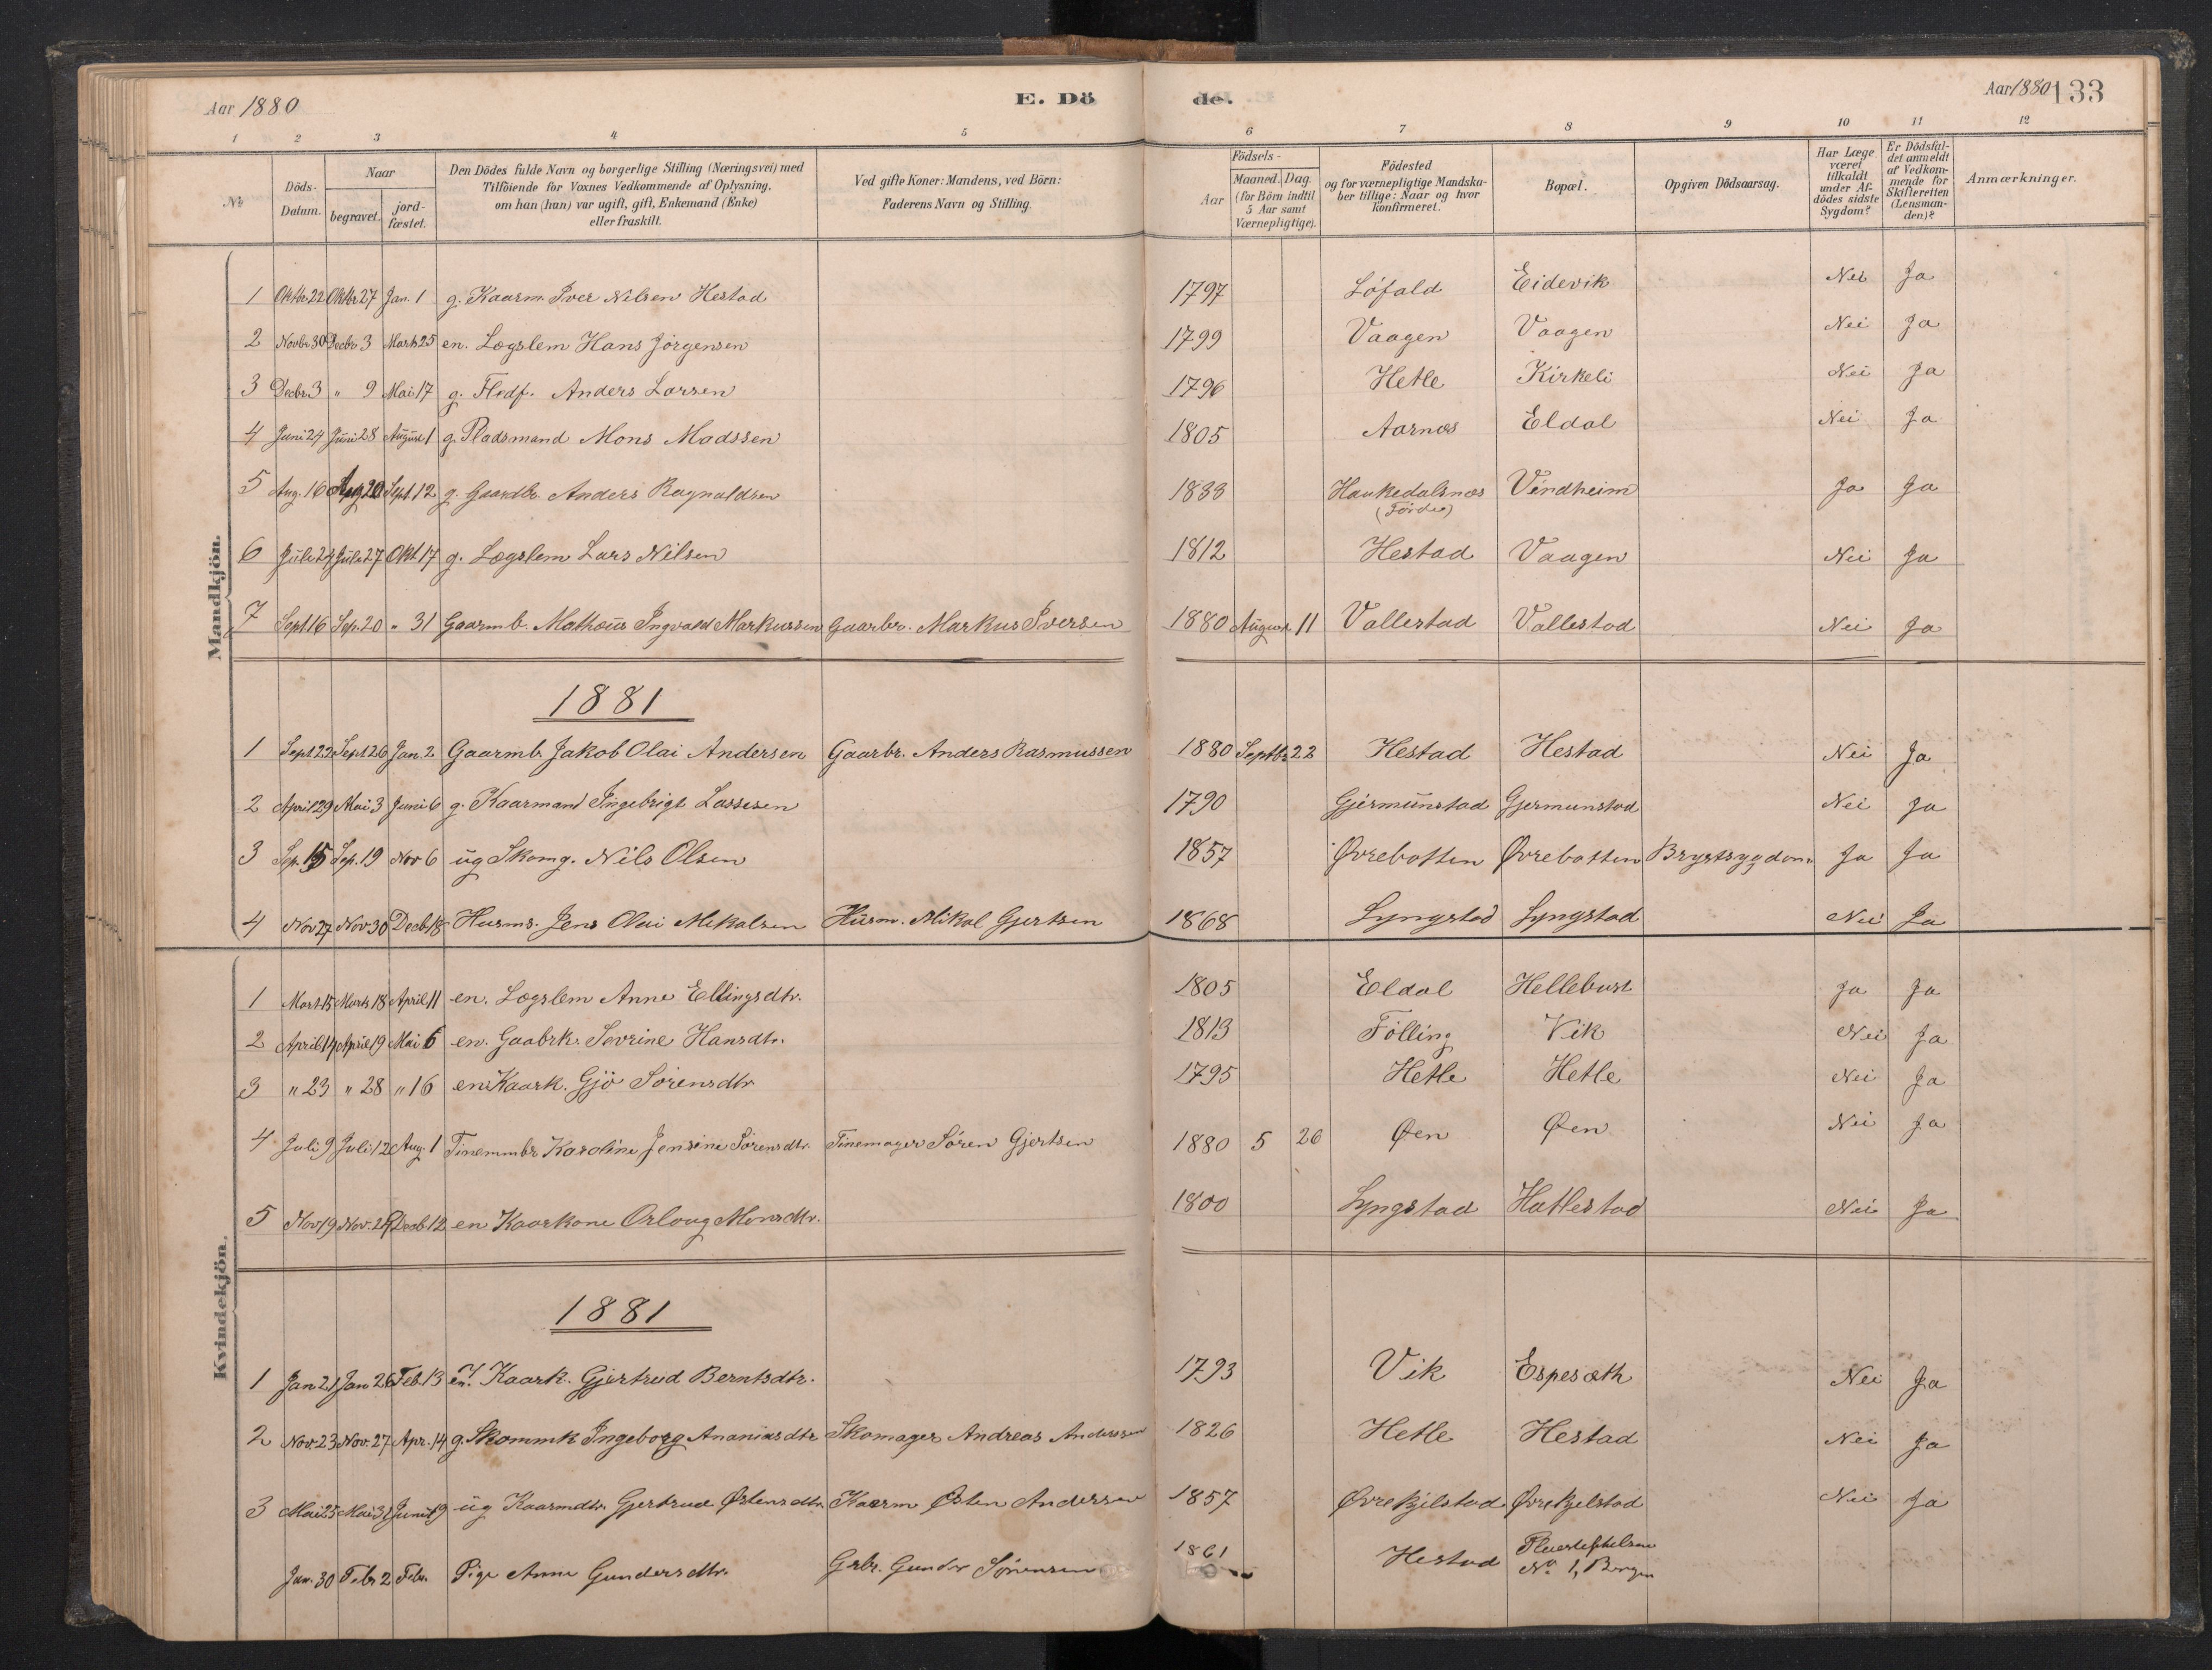 Aar 1880 E. Dö de. Aar 1880 133
1 2 3 4 5 6 7 8 9 10 11 12
№ Döds-Datum. Naar begravet. jord-fæstet. Den Dödes fulde Navn og borgerlige Stilling (Næringsvei) med Tilföiende for Voxnes Vedkommende af Oplysning, om han (hun) var ugift, gift, Enkemand (Enke) eller fraskilt. Ved gifte Koner: Mandens, ved Börn: Faderens Navn og Stilling. Födsels- Aar Maaned. Dag. (for Börn indtil 5 Aar samt Værnepligtige). Födested og for værnepligtige Mandskaber tillige: Naar og hvor Konfirmeret. Bopæl. Opgiven Dödsaarsag. Har Læge været tilkaldt under Afdödes sidste Sygdom? Er Dödsfaldet anmeldt af Vedkommende for Skifteretten (Lensmanden)? Anmærkninger.
Mandkjön.
1 Oktbr 22 Oktbr 27 Jan. 1 g. Kaarm. Iver Nilsen Hestad 1797 Löfald Eidevik Nei Ja
2 Novbr 30 Decbr 3 Marts 25 en. Lægslem Hans Jörgensen 1799 Vaagen Vaagen Nei Ja
3 Decbr. 3 " 9 Mai 17 g. Flodf. Anders Larsen 1796 Hetle Kirkeli Nei Ja
4 Juni 24 Juni 28 August 1 g. Pladsmand Mons Madssen 1805 Aarnæs Eldal Nei Ja
5 Aug. 16 Aug 20 Sept. 12 g. Gaardbr. Anders Ragnaldsen 1833 Haukedalsnæs (Förde) Vindheim Ja Ja
6 Juli 24 Juli 27 Okt 17 g. Lægslem Lars Nilsen 1812 Hestad Vaagen Nei Ja
7 Sept 16 Sep. 20 " 31 Gaarmb. Mathæus Ingvald Markussen Gaarbr. Markus Iversen 1880 August 11 Vallestad Vallestad Nei Ja
1881
1 Sept 22 Sept 26 Jan. 2. Gaarmb. Jakob Olai Andersen Gaarbr. Anders Rasmussen 1880 Septbr 22 Hestad Hestad Nei Ja
2 April 29 Mai 3 Juni 6 g. Kaarmand Ingebrigt Lassesen 1790 Gjermunstad Gjermunstad Nei Ja
3 Sep. 15 Sep. 19 Nov 6 ug Skomg. Nils Olsen 1857 Øvrebotten Øvrebotten Brystsygdom Ja Ja
4 Nov 27 Nov 30 Decb 18 Husms. Jens Olai Mikalsen Husm. Mikal Gjertsen 1868 Lyngstad Lyngstad Nei Ja
Kvindekjön.
1 Mart 15 Marts 18 April 11 en. Lægslem Anne Ellingsdtr. 1805 Eldal Hellebust Ja Ja
2 April 14 April 19 Mai 6 en. Gaabrk. Sevrine Hansdtr. 1813 Fölling Vik Nei Ja
3 " 23 " 28 " 16 en Kaark. Gjö Sörensdtr 1795 Hetle Hetle Nei Ja
4 Juli 9 Juli 12 Aug. 1 Tinemmbr Karoline Jensine Sörensdtr. Tinemager Sören Gjertsen 1880 5 26 Øen Øen Nei Ja
5 Nov 19 Nov. Decb 12 en Kaarkone Orloug Monsdtr. 1800 Lyngstad Hatlestad Nei Ja
1881
1 Jan 21 Jan 26 Feb. 13 en. Kaark. Gjertrud Berntsdtr. 1793 Vik Espesæth Nei Ja
2 Nov. 23 Nov. 27 Apr. 14 g. Skommk Ingeborg Ananiasdtr Skomager Andreas Anderssen 1826 Hetle Hestad Nei Ja
3 Mai 25 Mai 31 Juni 19 ug Kaarmdtr. Gjertrud Østensdtr. Kaarm Østen Andersen 1857 Øvrekjelstad Øvrekjelstad Nei Ja
Jan. 30 Febr 2 Febr. Pige Anne Gundersdtr. Grbr. Gunder Sörensen 1861 Hestad Pleiestiftelsen No. 1, Bergen